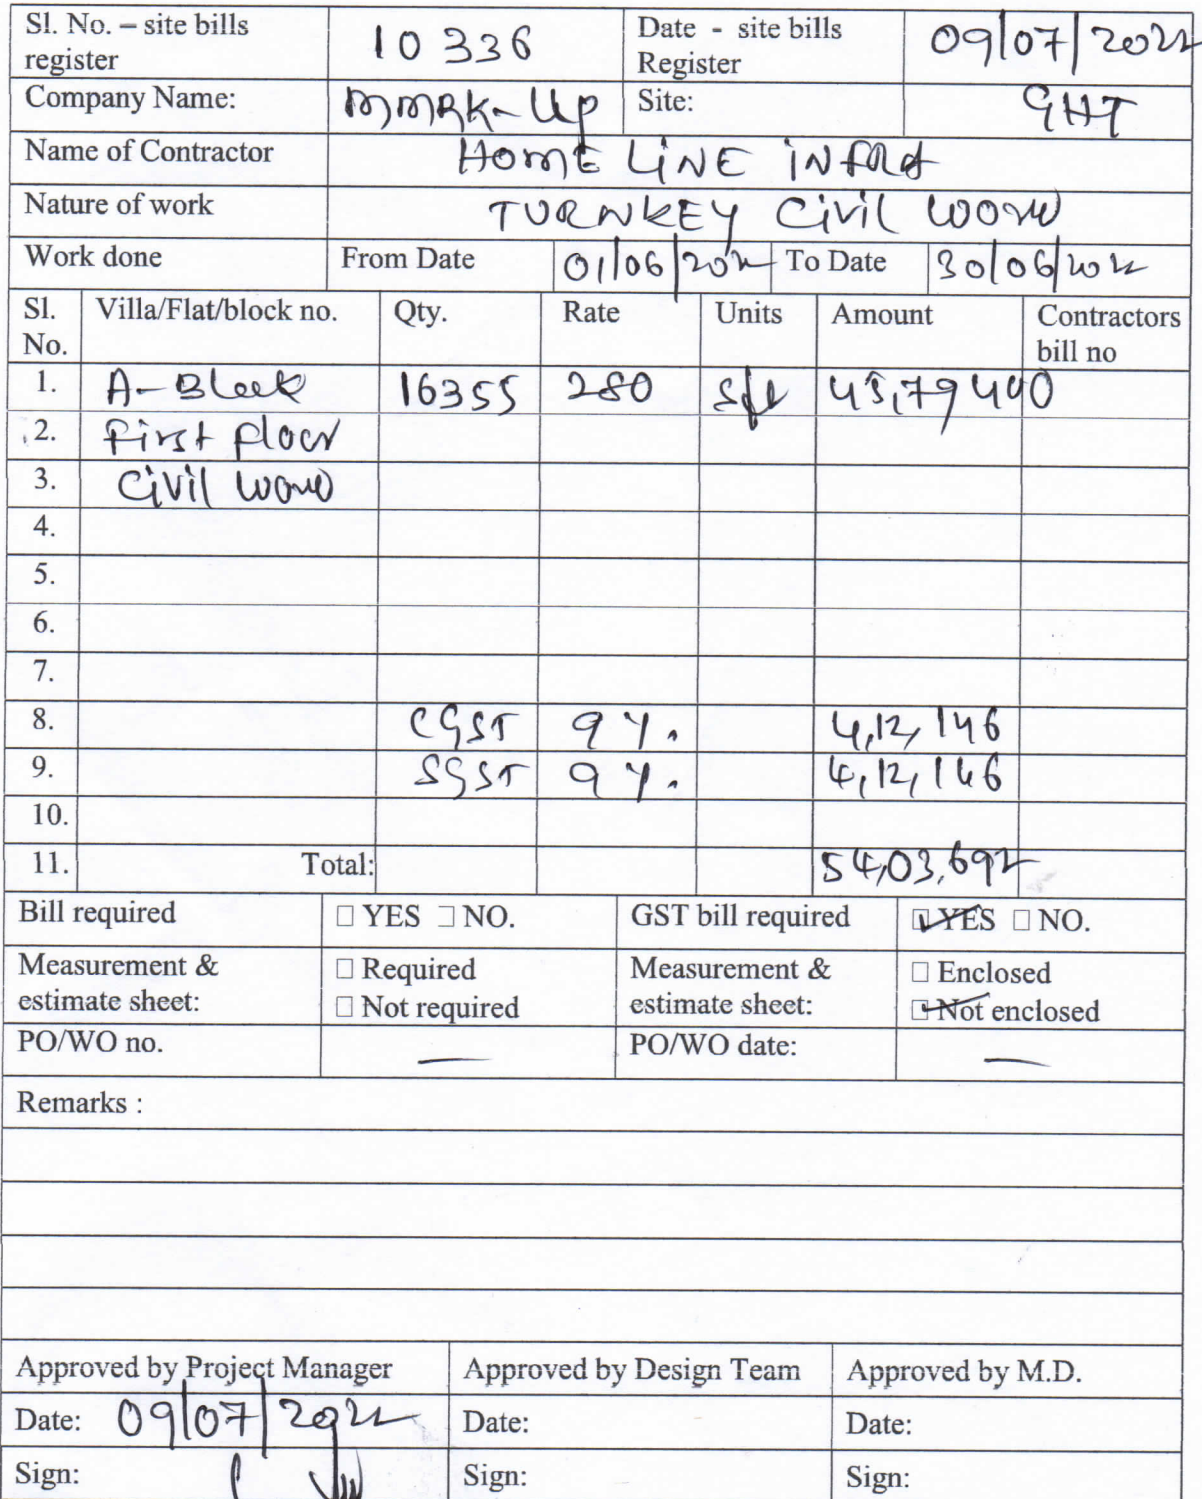 Sl. No. – site bills register 10 336 Date - site bills Register 09/07/2022
Company Name: MMRK-Up Site: GHT
Name of Contractor HOME LINE INFRA
Nature of work TURNKEY Civil Work
Work done From Date 01/06/2022 To Date 30/06/2022
Sl. No. Villa/Flat/block no. Qty. Rate Units Amount Contractors bill no
1. A-Block 16355 280 sft 45,79400
2. First Floor
3. Civil Work
4.
5.
6.
7.
8. CGST 9%. 4,12,146
9. SGST 9%. 4,12,146
10.
11. Total: 54,03,692
Bill required □ YES □ NO. GST bill required ☑ YES □ NO.
Measurement & estimate sheet: □ Required □ Not required Measurement & estimate sheet: □ Enclosed ☑ Not enclosed
PO/WO no. — PO/WO date: —
Remarks :
Approved by Project Manager Approved by Design Team Approved by M.D.
Date: 09/07/2022 Date: Date:
Sign: Sign: Sign: